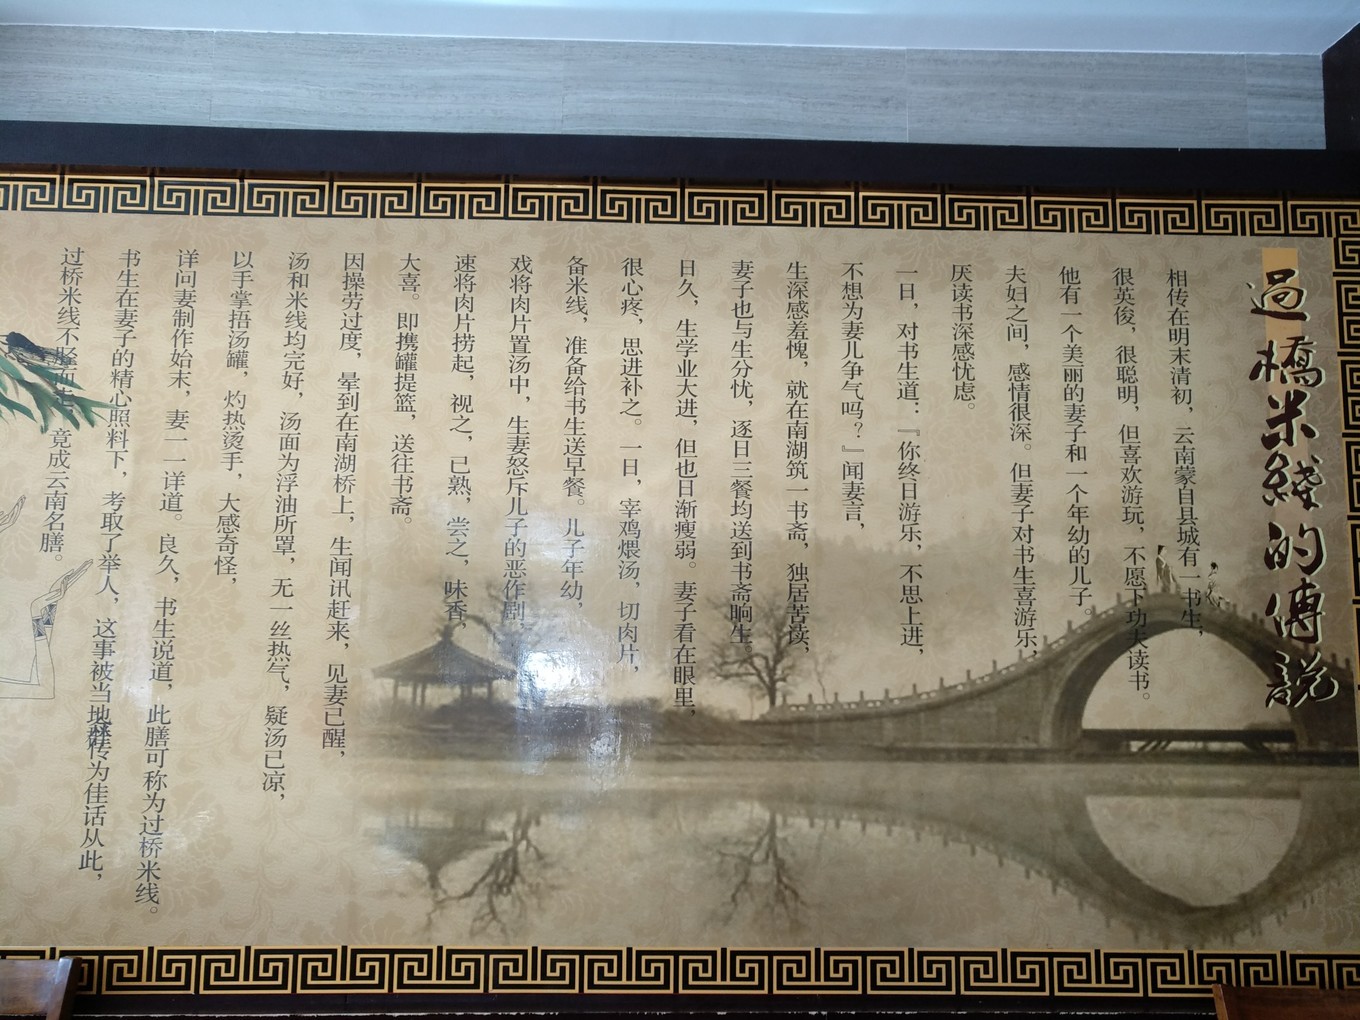 過橋米綫的傳説
相传在明末清初，云南蒙自县城有一书生，
很英俊，很聪明，但喜欢游玩，不愿下功夫读书。
他有一个美丽的妻子和一个年幼的儿子。
夫妇之间，感情很深。但妻子对书生喜游乐，
厌读书深感忧虑。
一日，对书生道：『你终日游乐，不思上进，
不想为妻儿争气吗？』闻妻言，
生深感羞愧，就在南湖筑一书斋，独居苦读，
妻子也与生分忧，逐日三餐均送到书斋晌生。
日久，生学业大进，但也日渐瘦弱。妻子看在眼里，
很心疼，思进补之。一日，宰鸡煨汤，切肉片，
备米线，准备给书生送早餐。儿子年幼，
戏将肉片置汤中，生妻怒斥儿子的恶作剧，
速将肉片捞起，视之，已熟，尝之，味香，
大喜。即携罐提篮，送往书斋。
因操劳过度，晕到在南湖桥上，生闻讯赶来，见妻已醒，
汤和米线均完好，汤面为浮油所罩，无一丝热气，疑汤已凉，
以手掌捂汤罐，灼热烫手，大感奇怪，
详问妻制作始末，妻一一详道。良久，书生说道，此膳可称为过桥米线。
书生在妻子的精心照料下，考取了举人，这事被当地传为佳话从此，
过桥米线不胫而走，竟成云南名膳。